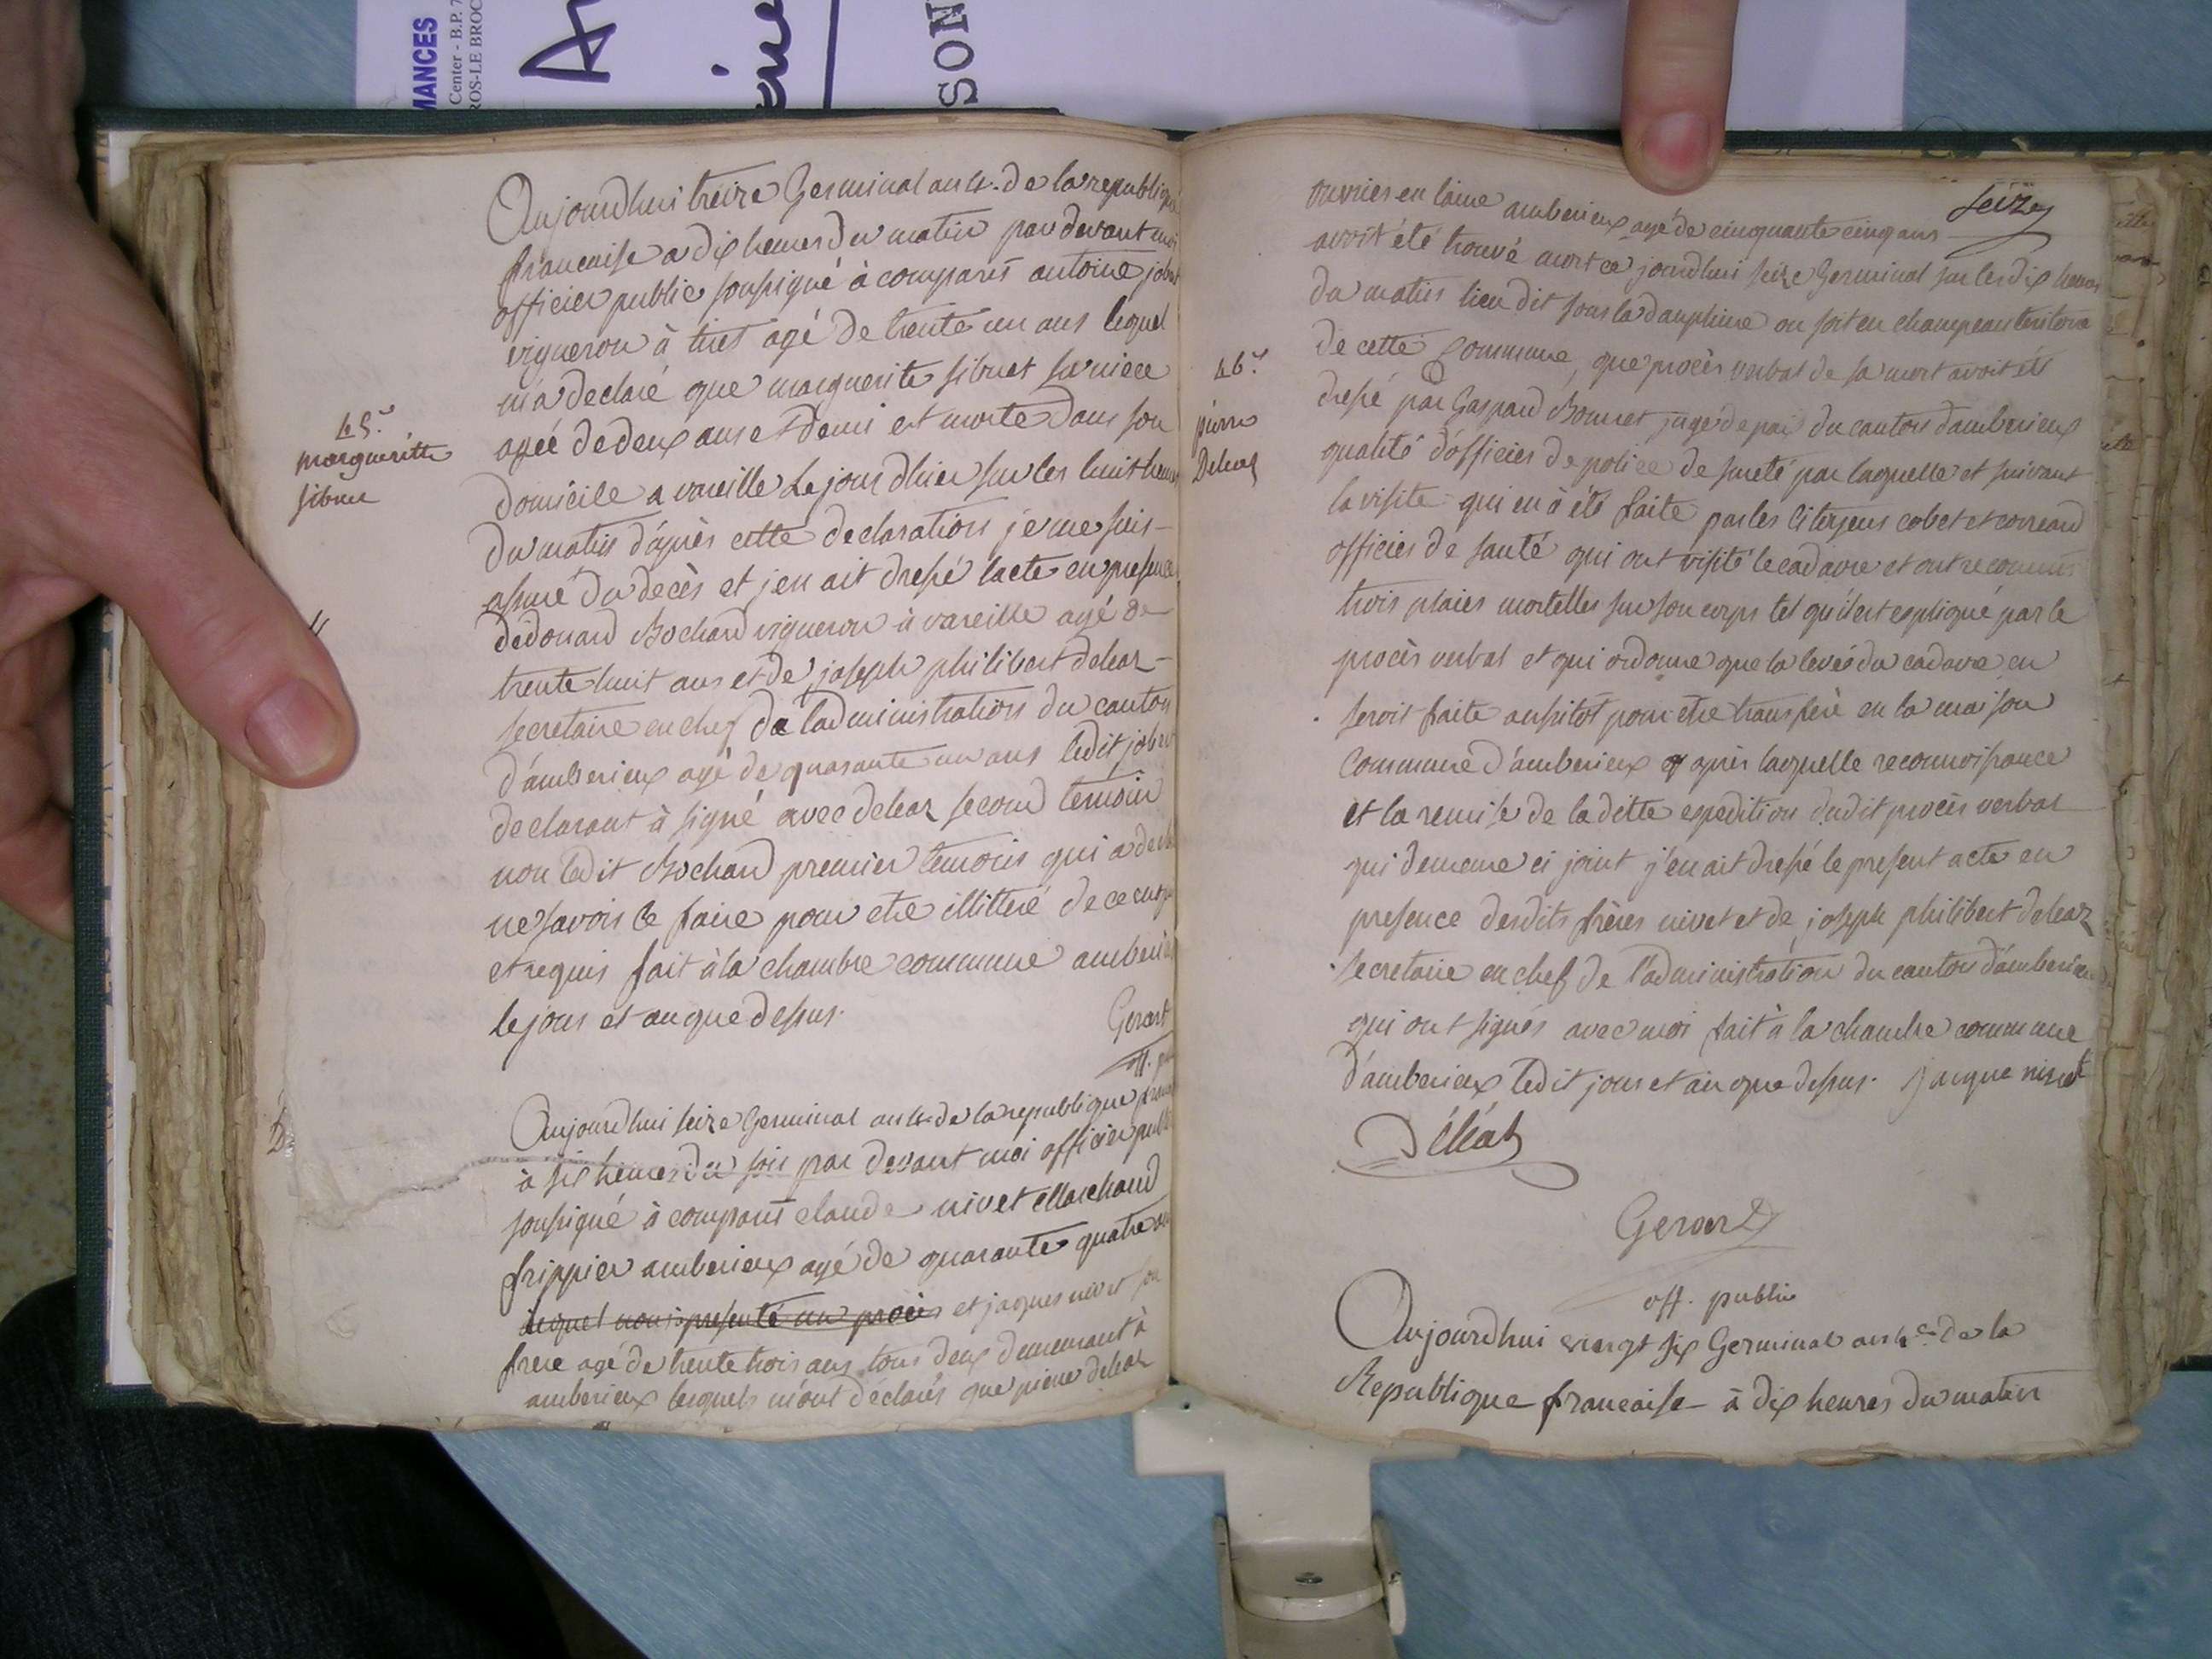 MANCES
Center - B.P. 7
ROS-LE BROC
SON
Aujourdhui treize Germinal an 4. de la republique
francaise a dix heures du matin par devant moi
officier public soussigné à comparut antoine jobert
vigneron à tiret agé de trente un ans lequel
m'a declaré que marguerite sibuet sa niece
agée de deux ans et demi est morte dans son
domicile a vareille le jour d'hier sur les huit heures
du matin d'après cette declaration je me suis
assuré du decès et j'en ait dressé l'acte en presence
d'édouard Bochard vigneron à vareille agé de
trente huit ans et de joseph philibert deleaz
secretaire en chef de l'administration du canton
d'amberieux agé de quarante un ans ledit jobert
declarant à signé avec deleaz second temoin
non ledit Bochard premier temoin qui a declaré
ne savoir le faire pour etre illitteré de ce enquis
et requis fait à la chambre commune amberieux
le jour et an que dessus.
Gerart
off. pu
45.e
margueritte
sibuet
Aujourdhui seize Germinal an 4. de la republique franc
à six heures du soir par devant moi officier public
soussigné à comparut claude nivet Marchand
frippier amberieux agé de quarante quatre ans
lequel nous a presenté un procès et jaques nivet son
frere agé de trente trois ans tous deux demeurant à
amberieux lesquels m'ont déclarés que pierre deleaz
seize
ouvrier en laine amberieux agé de cinquante cinq ans
avoit été trouvé mort ce jourdhui seize Germinal sur les dix heures
du matin lieu dit sous la dauphine ou soit en champeau territoire
de cette Commune, que procès verbal de sa mort avoit été
dressé par Gaspard Bonnet juge de paix du canton d'amberieux
qualité d'officier de police de sureté par laquelle et suivant
la visite qui en à été faite par les citoyens cobet et
officier de santé qui ont visité le cadavre et ont reconnus
trois plaies mortelles sur son corps tel qu'il est expliqué par le
procès verbal et qui ordonne que la levée du cadavre en
seroit faite aussitot pour etre transferé en la maison
Commune d'amberieux après laquelle reconnoissance
et la remise de la ditte expedition dudit procès verbal
qui demeure ci joint j'en ait dressé le present acte en
presence desdits frères nivet et de joseph philibert deleaz
secretaire en chef de l'administration du canton d'amberieux
qui ont signés avec moi fait à la chambre commune
d'amberieux ledit jour et an que dessus. Jacque nivet
46.e
pierre
Deleaz
Déléaz
Gerart
off. public
Aujourdhui vingt six Germinal an 4.e de la
Republique francaise à dix heures du matin